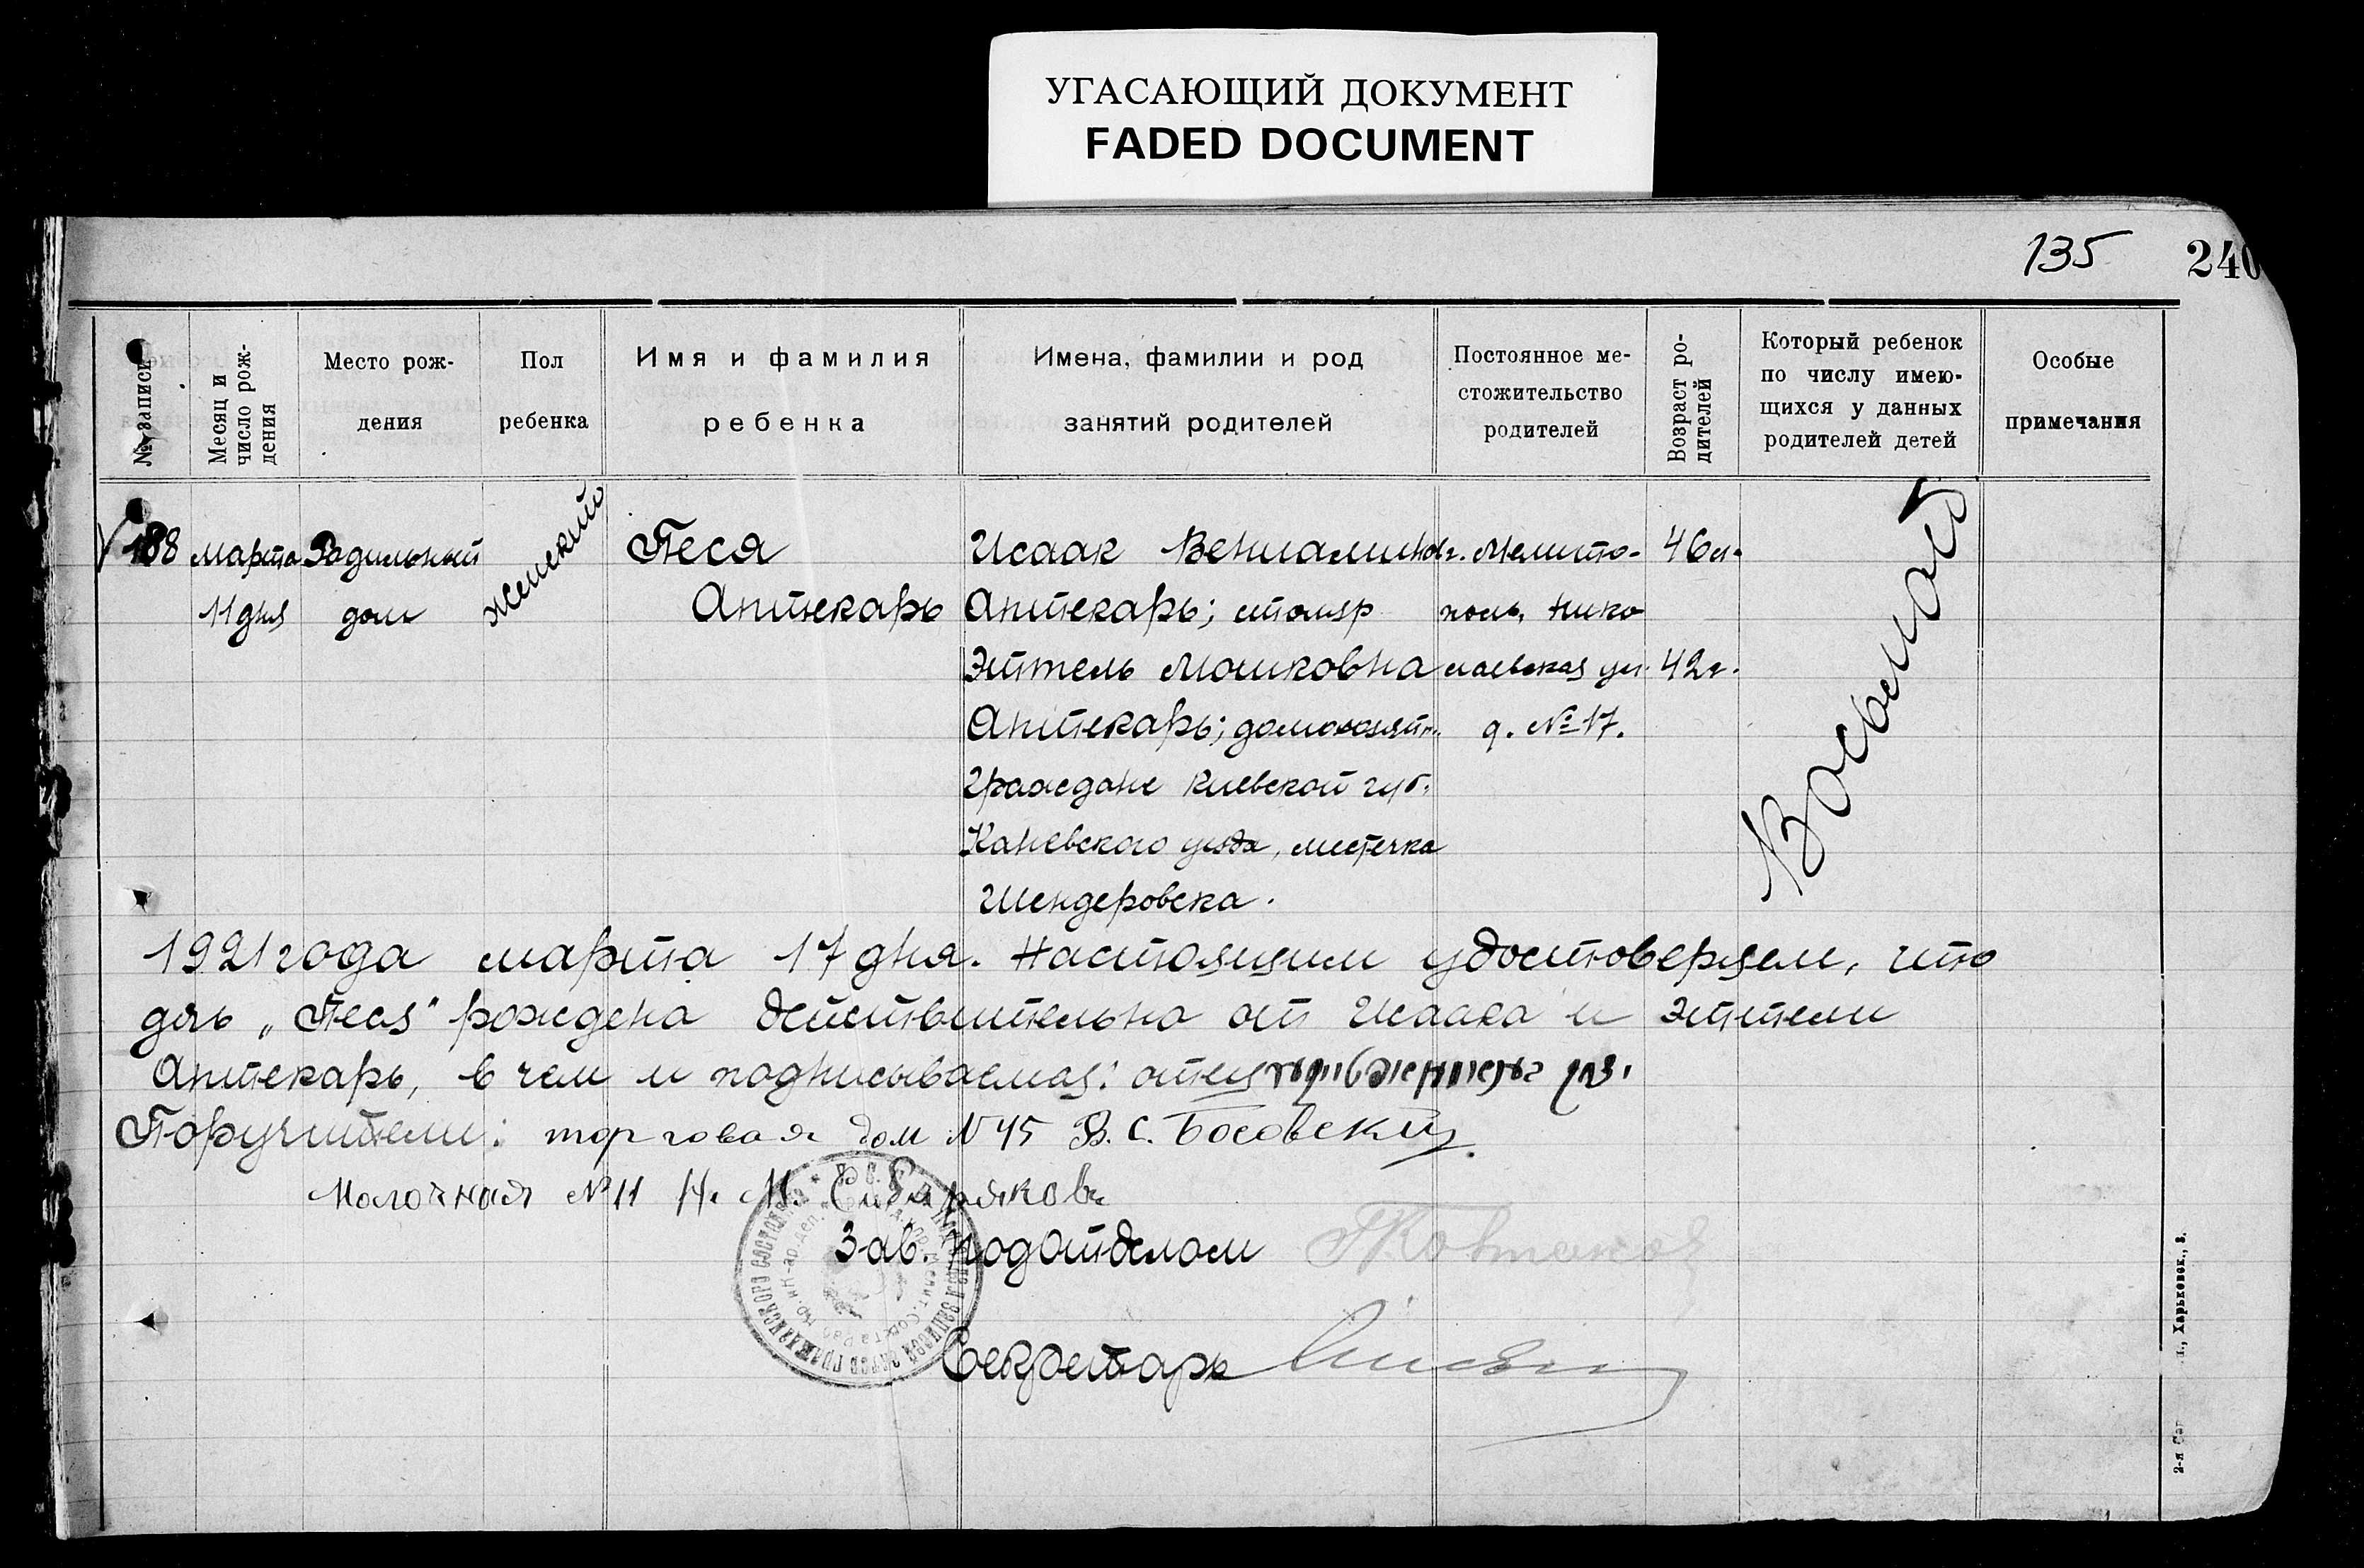 УГАСАЮЩИЙ ДОКУМЕНТ
FADED DOCUMENT
135 240
№ записи
Месяц и число рождения
Место рождения
Пол ребенка
Имя и фамилия ребенка
Имена, фамилии и род занятий родителей
Постоянное местожительство родителей
Возраст родителей
Который ребенок по числу имеющихся у данных родителей детей
Особые примечания
188 марта Родильный женский Песя Исаак Вениаминов г. Мелито- 46 л. Восьмой
11 дня дом Аптекарь Аптекарь; столяр поль, Нико
Эйтель Мошковна лаевская ул. 42 г.
Аптекарь; домохозяйк. д. № 17.
Граждане Киевской губ.
Каневского уезда, местечка
Шендеровска.
1921 года марта 17 дня. Настоящим удостоверяем, что
дочь „Песя" рождена действительно от Исаака и Эйтели
Аптекарь, в чем и подписываемся: отец
Поручители: торговая дом N 45 В. С. Босовский
Молочная № 11 Н. М.
Зав. подотделом
Секретарь
Харьковск., 3.
2-я